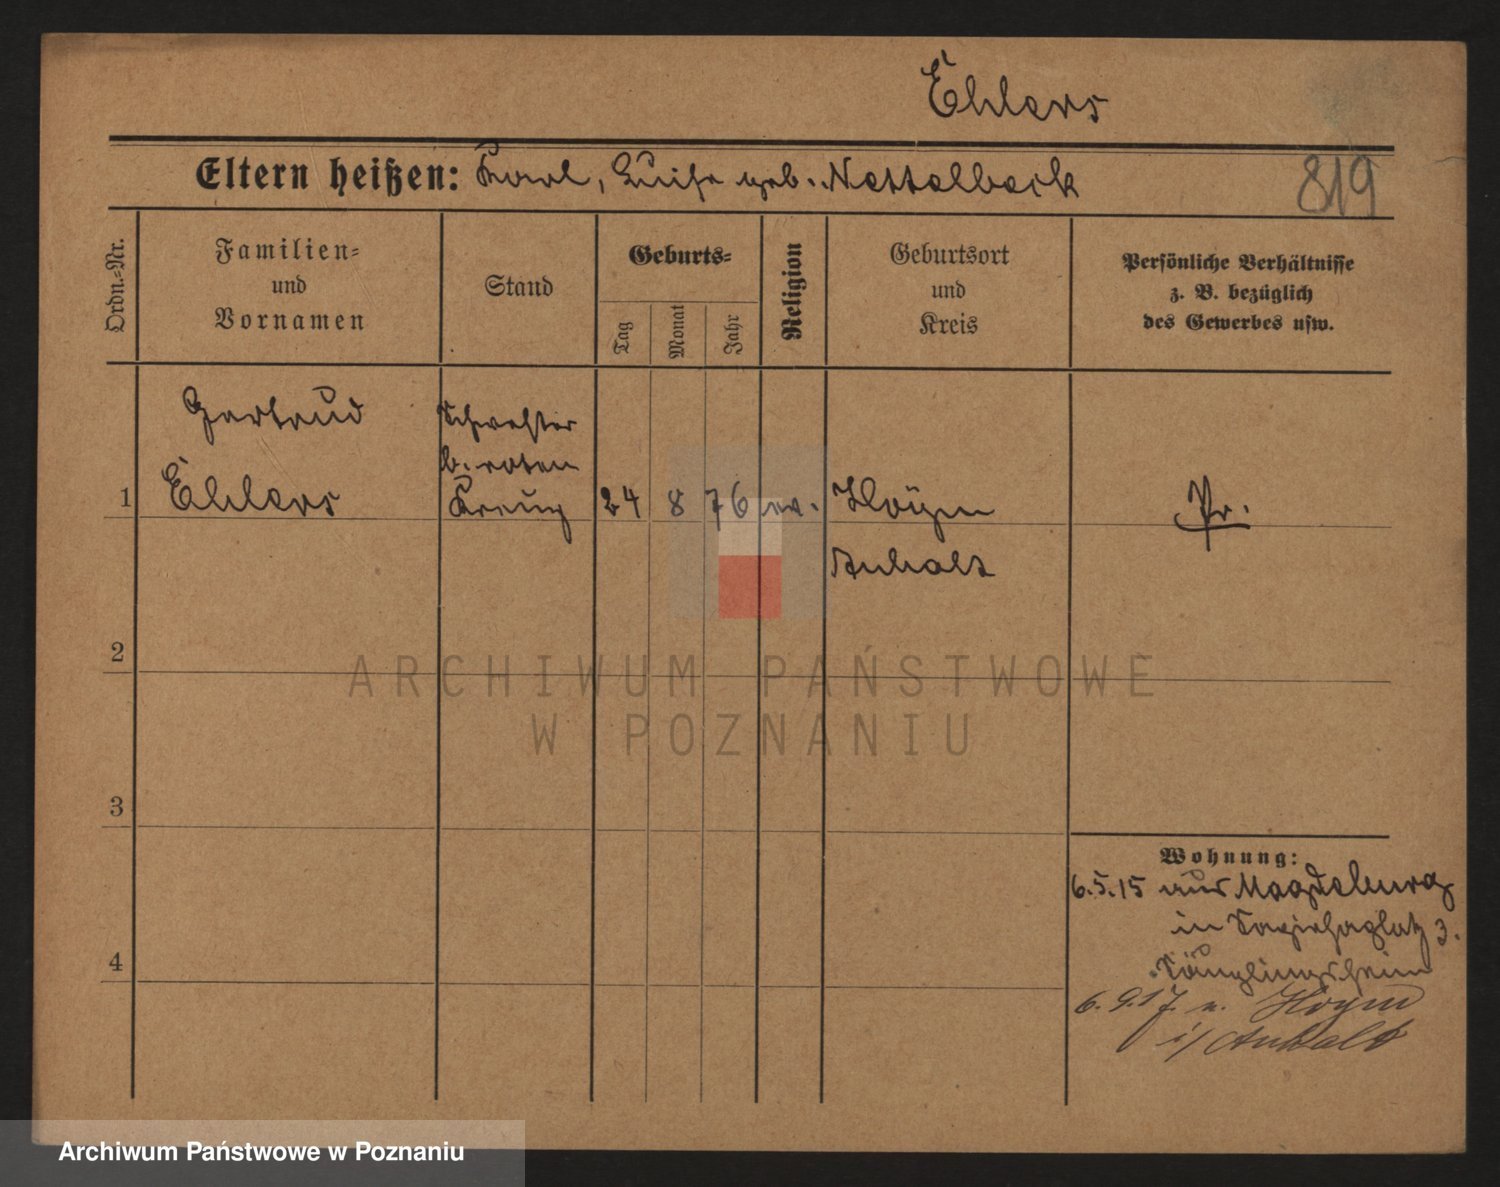 Ehlers
Eltern heißen: Karl, Luise geb. Nettelbeck
819
Ordn.=Nr.
Familien=
und
Vornamen
Stand
Geburts=
Tag
Monat
Jahr
Religion
Geburtsort
und
Kreis
Persönliche Verhältnisse
z. B. bezüglich
des Gewerbes usw.
Gertrud
Ehlers
Schwester
b. roten
Kreuz
1
24 8 76 ev.
Hoÿm
Anhalt
Pr.
2
3
4
ARCHIWUM PAŃSTWOWE
W POZNANIU
Wohnung:
6.5.15 aus Magdeburg
in 3.
Säuglingsheim
6.9.17. n. Hoym
i/Anhalt
Archiwum Państwowe w Poznaniu